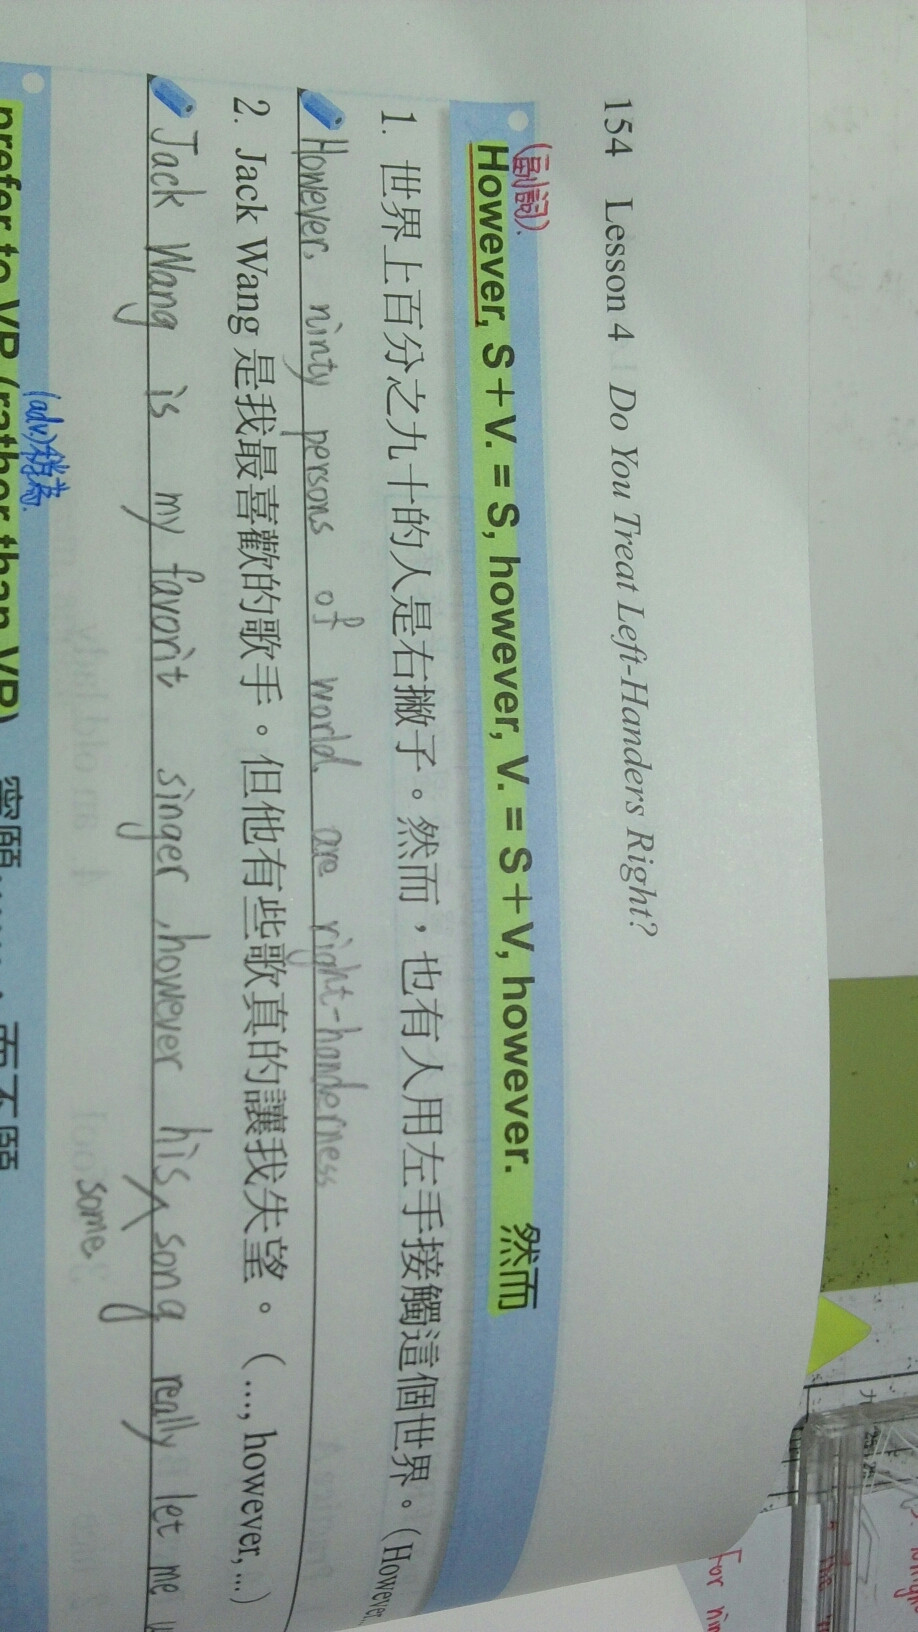 154 Lesson 4 Do You Treat Left-Handers Right?
(副詞).
However, S+V. = S, however, V. = S+V, however. 然而
1. 世界上百分之九十的人是右撇子。然而，也有人用左手接觸這個世界。(However
However, ninty persons of world are right-handerness
2. Jack Wang 是我最喜歡的歌手。但他有些歌真的讓我失望。(…, however, …)
Jack Wang is my favorit singer, however his song really let me
some
(adv.)稍為
prefer to VR (rather than VR) 寧願……，而不願
For nin